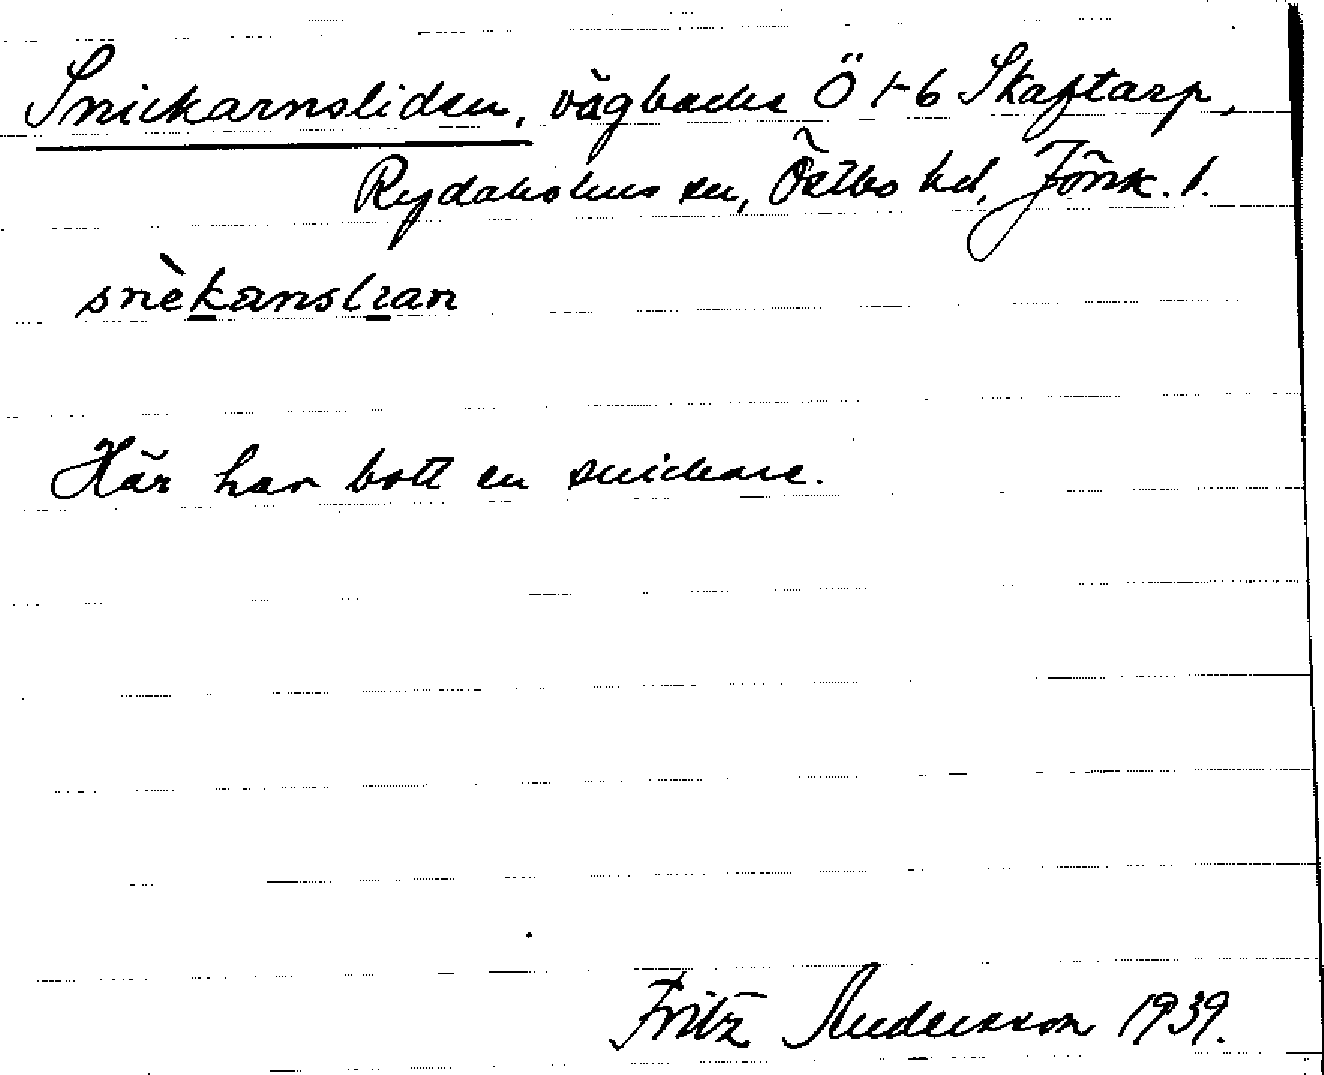 Snickarnsliden, vägbacke Ö 1-6 Skaftarp,
Rydaholms sn, Östbo hd, Jönk. l.
snèkanslian
Här har bott en snickare.
Fritz Andersson 1939.